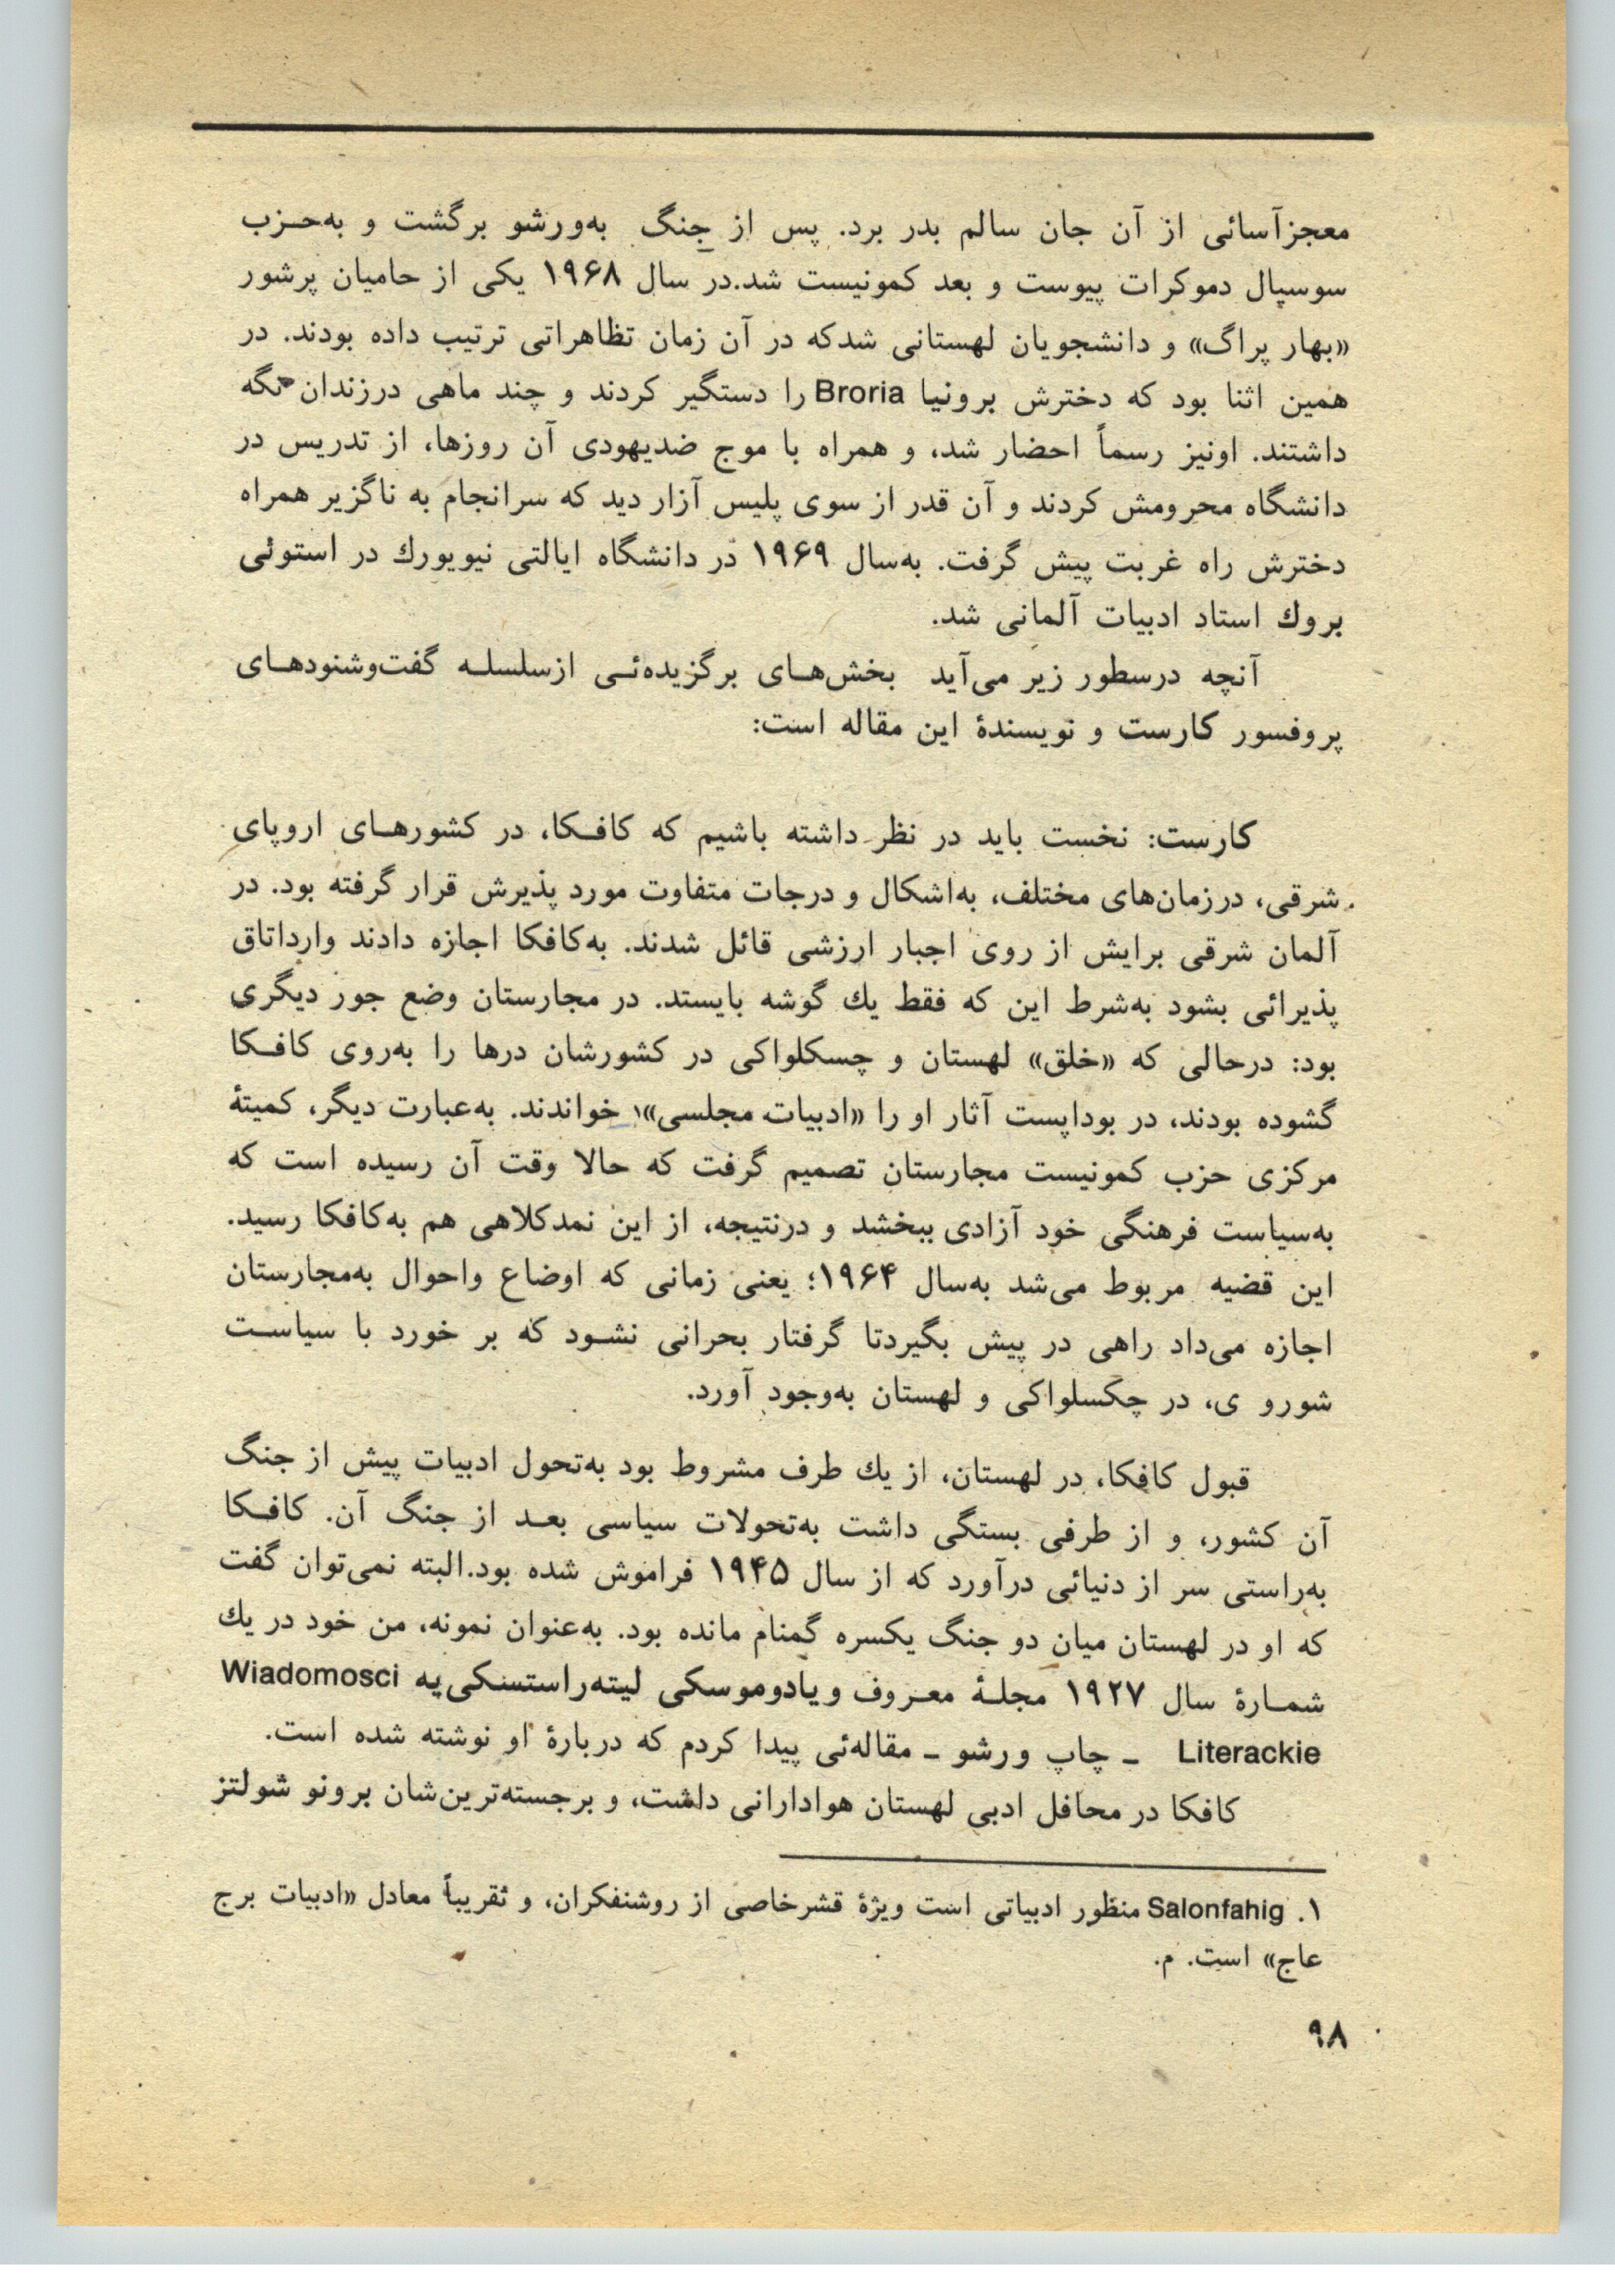 معجزآسائی از آن جان سالم بدر برد. پس از جنگ به‌ورشو برگشت و به‌حـزب
سوسپال دموکرات پیوست و بعد کمونیست شد.در سال ۱۹۶۸ یکی از حامیان پرشور
«بهار پراگ» و دانشجویان لهستانی شدکه در آن زمان تظاهراتی ترتیب داده بودند. در
همین اثنا بود که دخترش برونیا Broria را دستگیر کردند و چند ماهی درزندان نگه
داشتند. اونیز رسماً احضار شد، و همراه با موج ضدیهودی آن روزها، از تدریس در
دانشگاه محرومش کردند و آن قدر از سوی پلیس آزار دید که سرانجام به ناگزیر همراه
دخترش راه غربت پیش گرفت. به‌سال ۱۹۶۹ در دانشگاه ایالتی نیویورك در استوئی
بروك استاد ادبیات آلمانی شد.
آنچه درسطور زیر می‌آید بخش‌هـای برگزیده‌ئـی ازسلسلـه گفت‌وشنودهـای
پروفسور کارست و نویسندهٔ این مقاله است:
کارست: نخست باید در نظر داشته باشیم که کافـکا، در کشورهـای اروپای
شرقی، درزمان‌های مختلف، به‌اشکال و درجات متفاوت مورد پذیرش قرار گرفته بود. در
آلمان شرقی برایش از روی اجبار ارزشی قائل شدند. به‌کافکا اجازه دادند وارداتاق
پذیرائی بشود به‌شرط این که فقط یك گوشه بایستد. در مجارستان وضع جور دیگری
بود: درحالی که «خلق» لهستان و چسکلواکی در کشورشان درها را به‌روی کافـکا
گشوده بودند، در بوداپست آثار او را «ادبیات مجلسی»۱ خواندند. به‌عبارت دیگر، کمیتهٔ
مرکزی حزب کمونیست مجارستان تصمیم گرفت که حالا وقت آن رسیده است که
به‌سیاست فرهنگی خود آزادی ببخشد و درنتیجه، از این نمدکلاهی هم به‌کافکا رسید.
این قضیه مربوط می‌شد به‌سال ۱۹۶۴؛ یعنی زمانی که اوضاع واحوال به‌مجارستان
اجازه می‌داد راهی در پیش بگیردتا گرفتار بحرانی نشـود که بر خورد با سیاسـت
شورو ی، در چکسلواکی و لهستان به‌وجود آورد.
قبول کافکا، در لهستان، از یك طرف مشروط بود به‌تحول ادبیات پیش از جنگ
آن کشور، و از طرفی بستگی داشت به‌تحولات سیاسی بعـد از جنگ آن. کافـکا
به‌راستی سر از دنیائی درآورد که از سال ۱۹۴۵ فراموش شده بود.البته نمی‌توان گفت
که او در لهستان میان دو جنگ یکسره گمنام مانده بود. به‌عنوان نمونه، من خود در یك
شمـارهٔ سال ۱۹۲۷ مجلـهٔ معـروف ویادوموسکی لیته‌راستسکی‌یه Wiadomosci
Literackie ـ چاپ ورشو ـ مقاله‌ئی پیدا کردم که دربارهٔ او نوشته شده است.
کافکا در محافل ادبی لهستان هوادارانی داشت، و برجسته‌ترین‌شان برونو شولتز
۱. Salonfahig منظور ادبیاتی است ویژهٔ قشرخاصی از روشنفکران، و تقریباً معادل «ادبیات برج
عاج» است. م.
۹۸